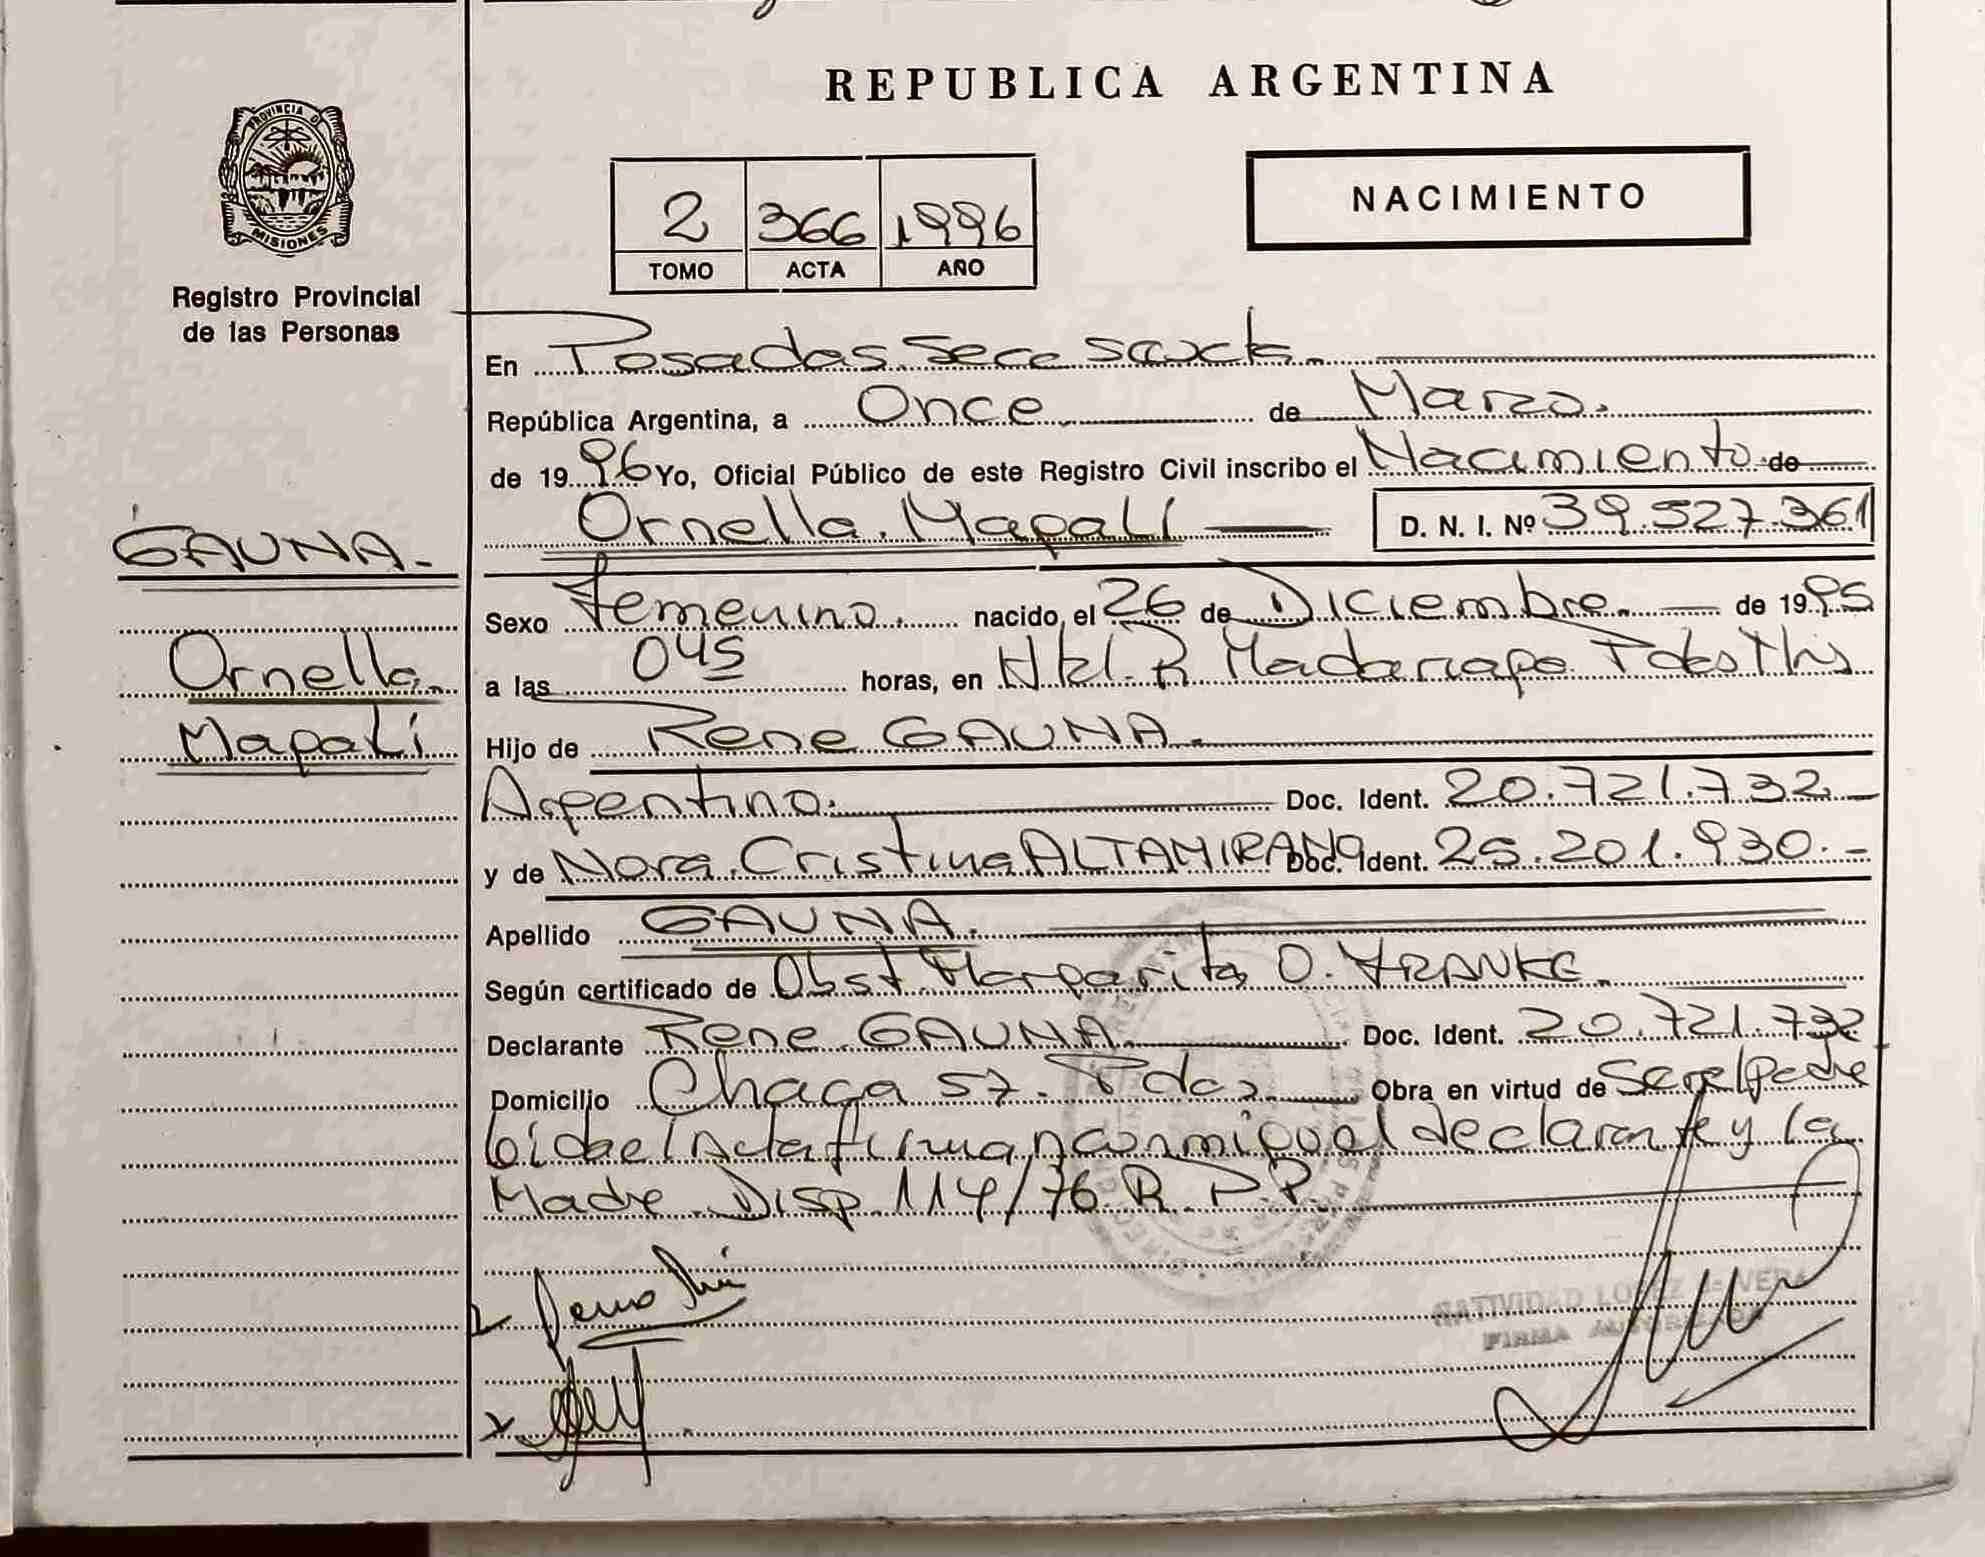 REPUBLICA ARGENTINA
PROVINCIA DE
MISIONES
Registro Provincial
de las Personas
2 366 1996
TOMO ACTA AÑO
NACIMIENTO
En Posadas. Secc sexta.
República Argentina, a Once de Marzo.
de 1996 Yo, Oficial Público de este Registro Civil inscribo el Nacimiento de
Ornella. Magalí D. N. I. Nº 39.527.361
GAUNA.
Ornella.
Magalí
Sexo Femenino. nacido el 26 de Diciembre. de 1995
a las 045 horas, en R Madariaga. Pdas Mis
Hijo de Rene GAUNA.
Argentino. Doc. Ident. 20.721.732.
y de Nora. Cristina ALTAMIRANO Doc. Ident. 25.201.930.
Apellido GAUNA.
Según certificado de Obst. Margarita O. FRANKE.
Declarante Rene GAUNA. Doc. Ident. 20.721.732
Domicilio Chaca 57. Pdas. Obra en virtud de Ser el padre
leida el Acta firman conmigo el declarante y la
Madre. Disp. 114/76. R. P. P.
NATIVIDAD LOPEZ de VERA
FIRMA AUTORIZADA